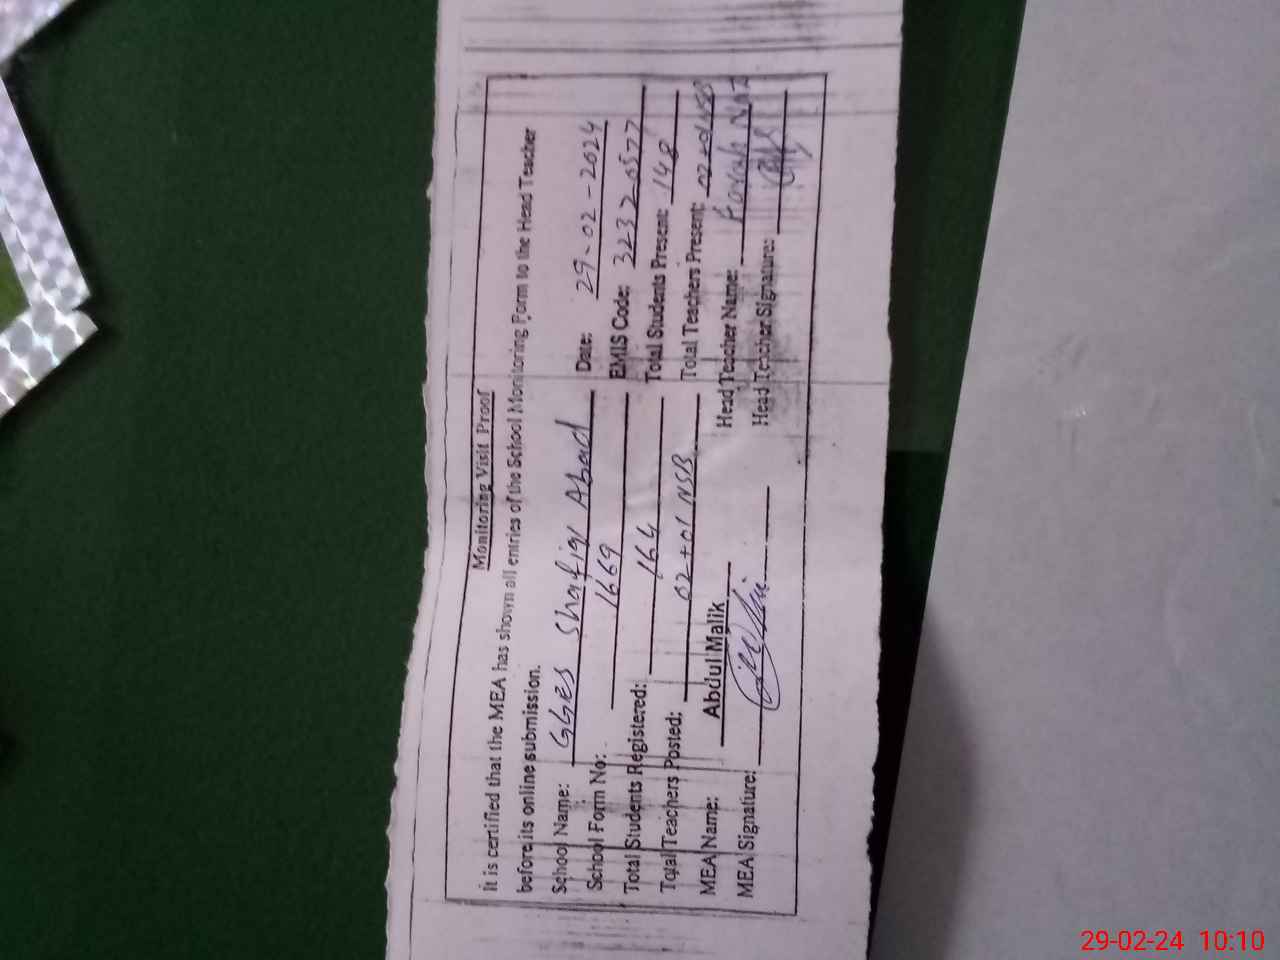 Monitoring Visit Proof
It is certified that the MEA has shown all entries of the School Monitoring Form to the Head Teacher
before its online submission.
School Name: GGES Shafiq Abad Date: 29-02-2024
School Form No: 1669 EMIS Code: 32320577
Total Students Registered: 164 Total Students Present: 148
Total Teachers Posted: 02+01 NSB Total Teachers Present: 02+01 NSB
MEA Name: Abdul Malik Head Teacher Name: Farah
MEA Signature: Head Teacher Signature:
29-02-24 10:10